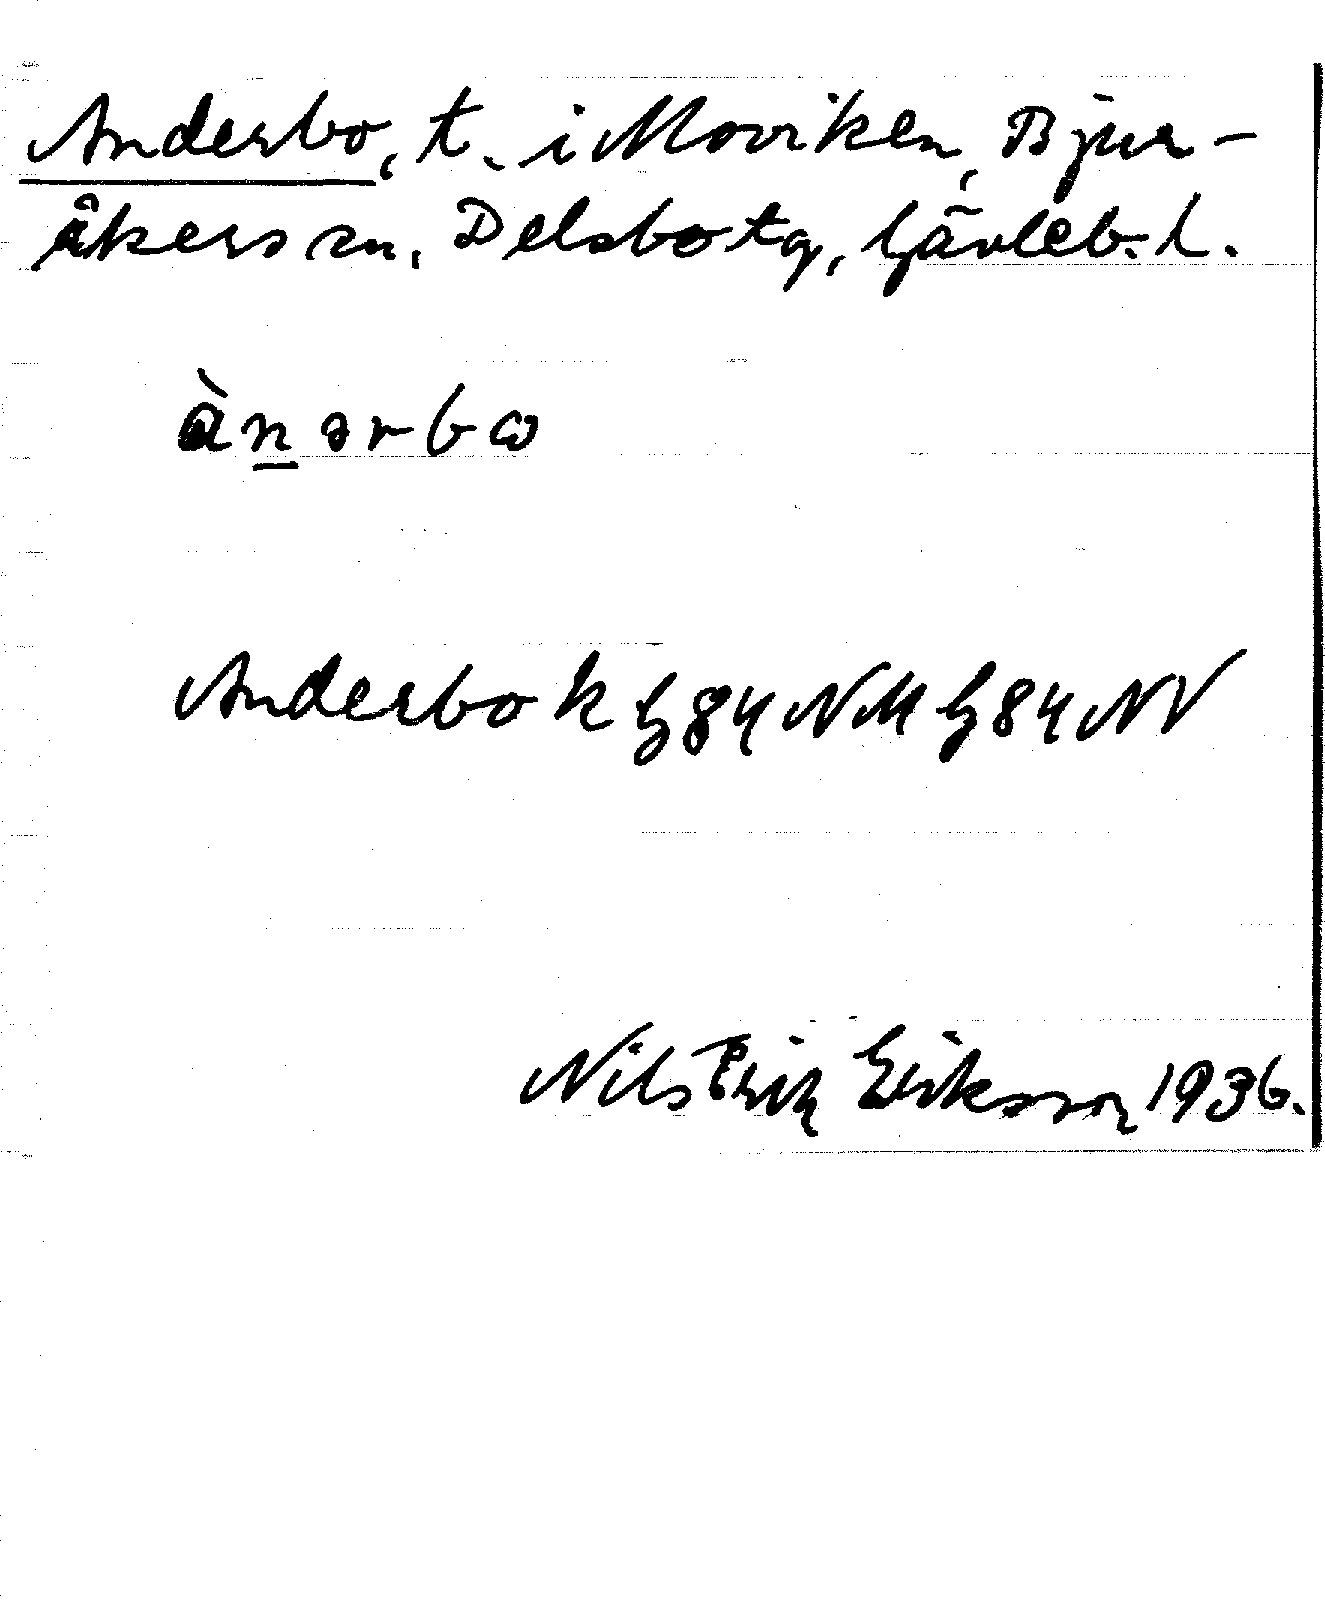 Anderbo, t. i Moviken, Bjur-
åkers sn, Delsbo tg, Gävleb. l.
ànərbω
Anderbo k G 84 NM G 84 NV
Nils Erik Eriksson 1936.